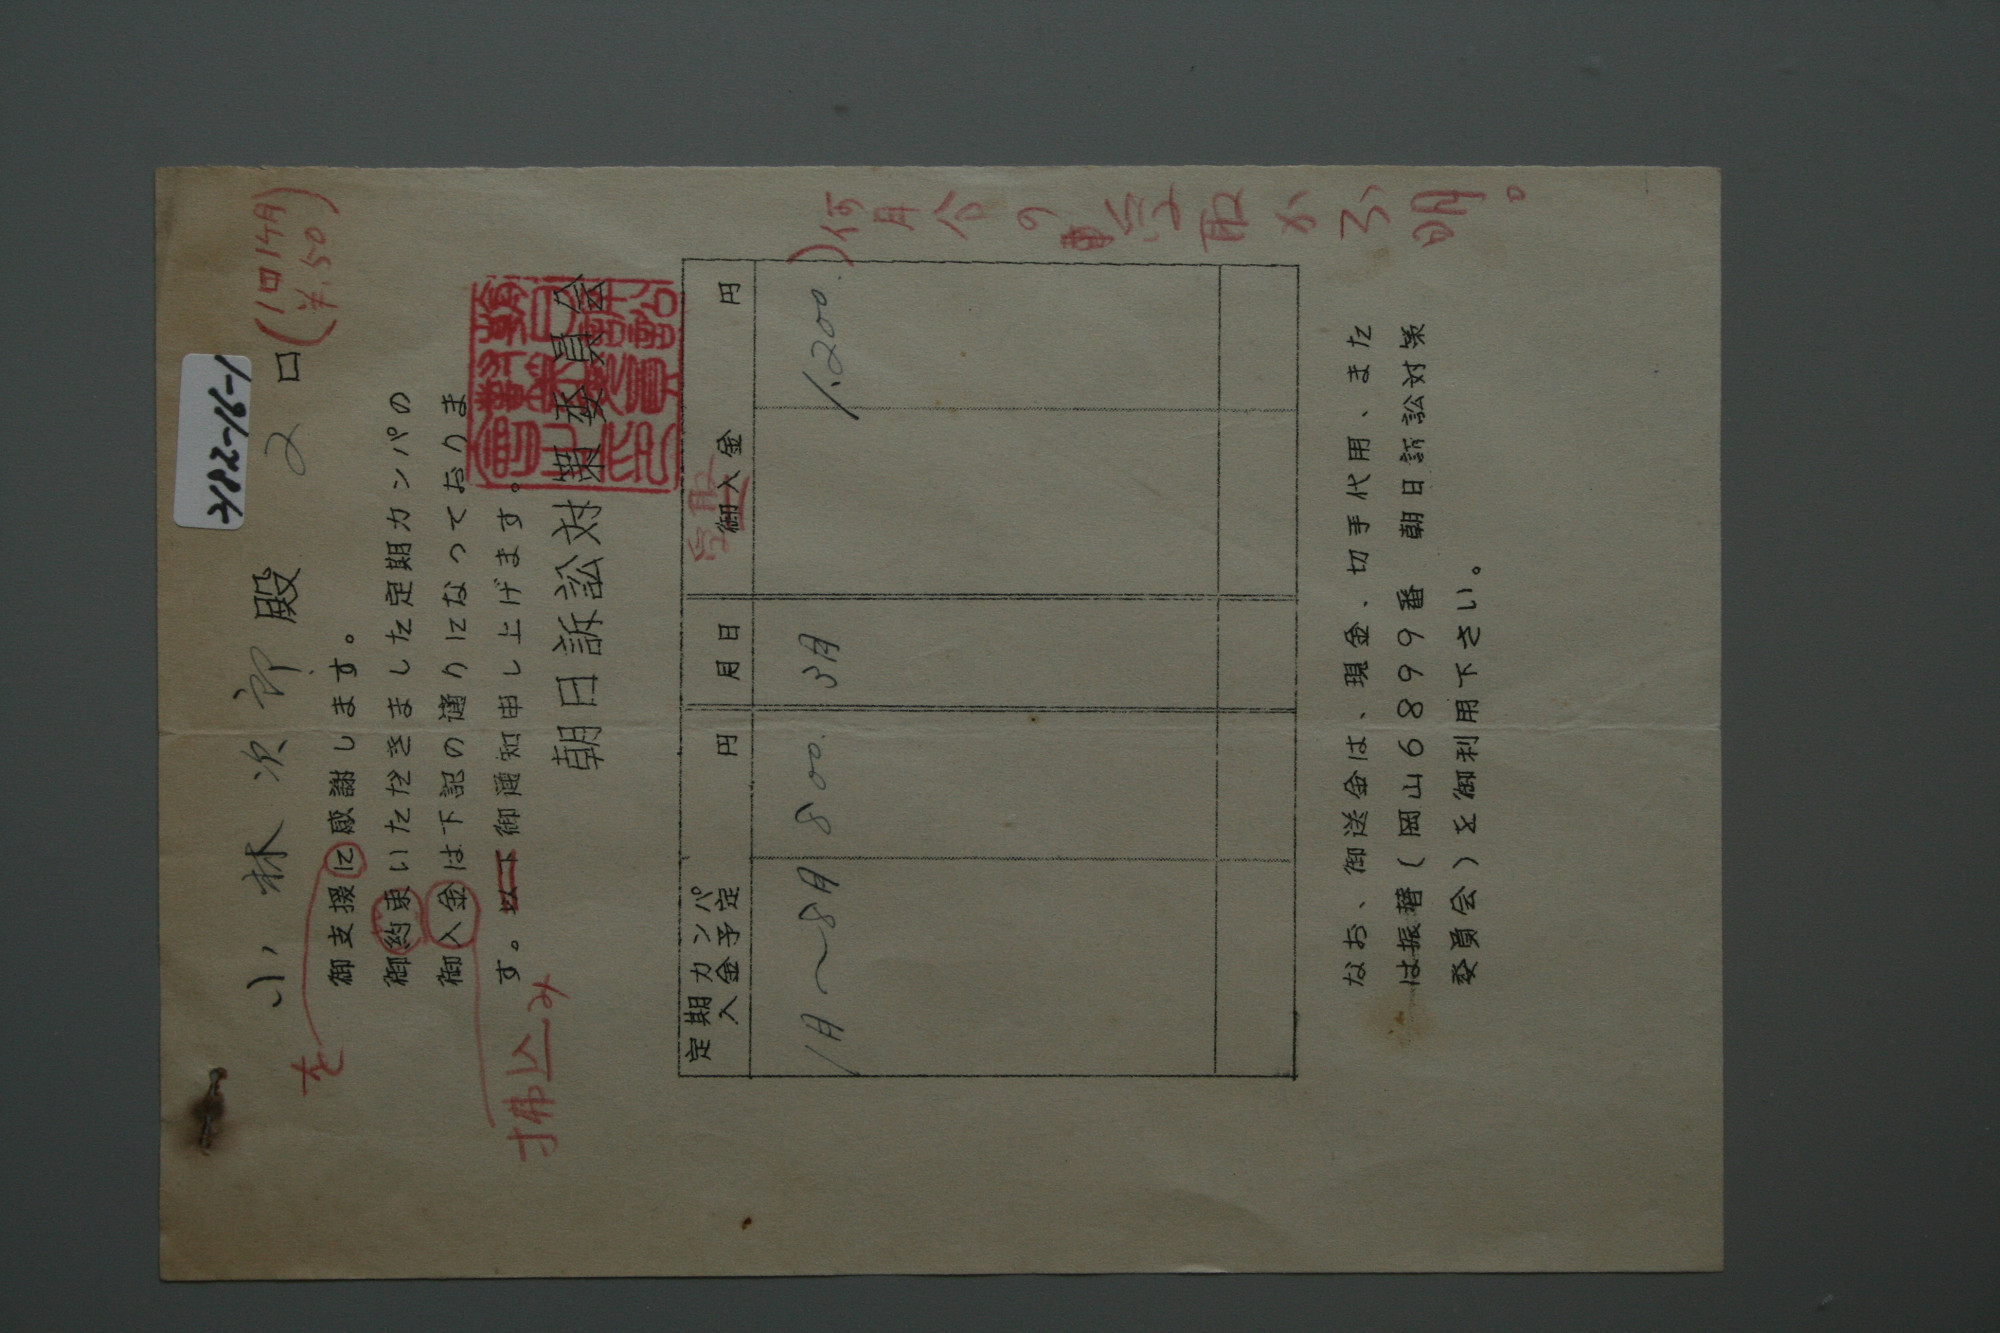 1-91-282½
小林次郎殿 2口
(1口1ヶ月
¥.50)
御支援に感謝します。
を
御約束いただきました定期カンパの
御入金は下記の通りになっておりま
す。以下御通知申し上げます。
払込み
朝日訴訟対策委員会
定期カンパ
入金予定 円 月日 御入金 円
受取
1月~8月 800. 3月 1,200.
)何月分の受取か不明。
なお、御送金は、現金、切手代用、また
は振替(岡山6899番 朝日訴訟対策
委員会)を御利用下さい。